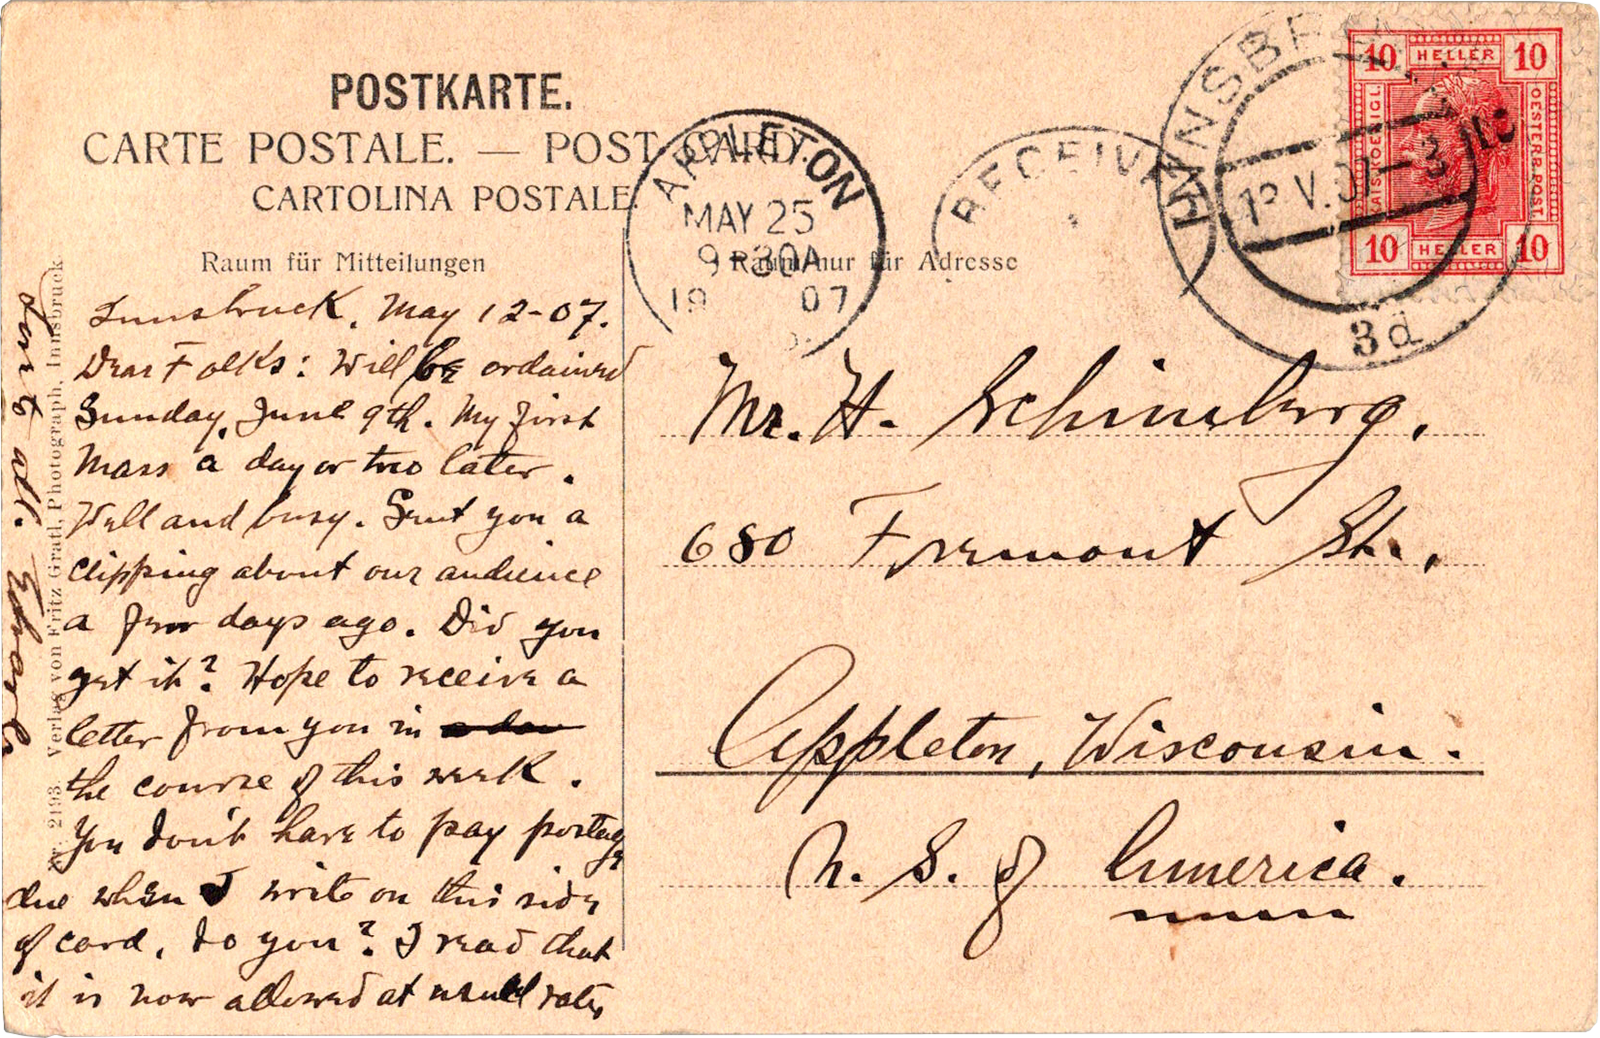 POSTKARTE.
CARTE POSTALE. — POST CARD.
CARTOLINA POSTALE.
Raum für Mitteilungen
Raum nur für Adresse
APPLETON
MAY 25
9-30A
19 07
RECEIVE
INNSBR
V.07-3
3d
10 HELLER 10
KAIS. KOENIGL.
OESTERR. POST.
10 HELLER 10
Innsbruck, May 12-07.
Dear Folks: Will be ordained
Sunday, June 9th. My first
Mass a day or two later.
Well and busy. Sent you a
clipping about our audience
a few days ago. Did you
get it? Hope to receive a
letter from you in
the course of this week.
You don't have to pay postage
due when I write on this side
of card, do you? I read that
it is now allowed at usual rates
to all.
Nr. 2193. Verlag von Fritz Gratl, Photograph, Innsbruck
Mr. H. Schimberg,
680 Fremont St.,
Appleton, Wisconsin.
U. S. of America.